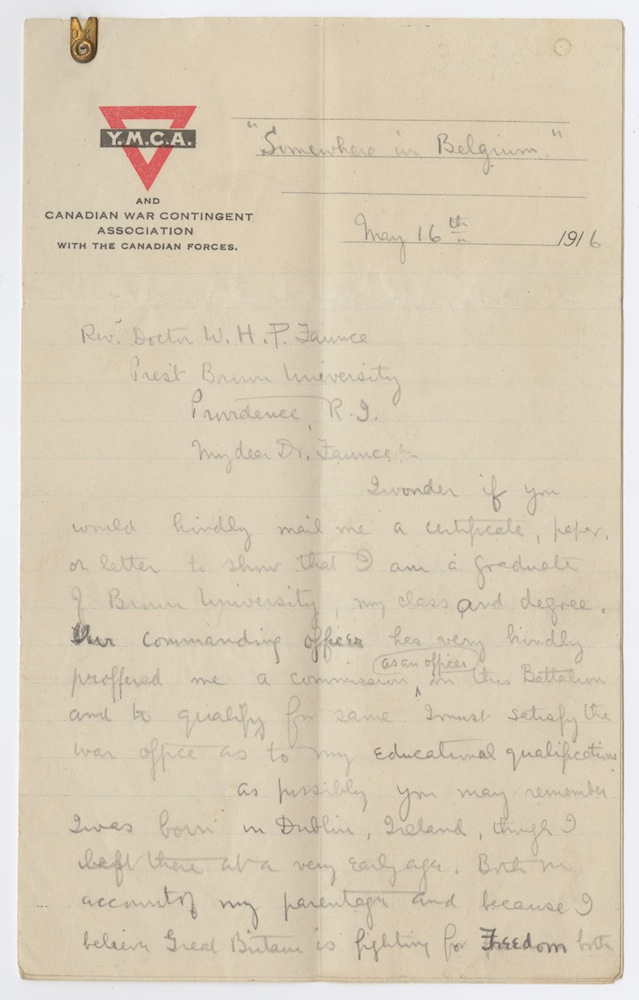 Y.M.C.A.
AND
CANADIAN WAR CONTINGENT
ASSOCIATION
WITH THE CANADIAN FORCES.
"Somewhere in Belgium."
May 16th 1916
Rev. Doctor W. H. P. Faunce
Prest Brown University
Providence, R. I.
My dear Dr. Faunce:-
I wonder if you
would kindly mail me a certificate, paper,
or letter to show that I am a graduate
of Brown University, my class and degree.
Our commanding officer has very kindly
proffered me a commission ^ as an officer in this Battalion
and to qualify for same I must satisfy the
War office as to my educational qualifications
as possibly you may remember
I was born in Dublin, Ireland, though I
left there at a very early age. Both on
account of my parentage and because I
believe Great Britain is fighting for Freedom both